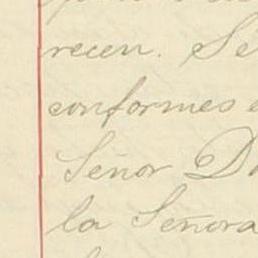 recen. Se
conformes
Señor Do
la Señora